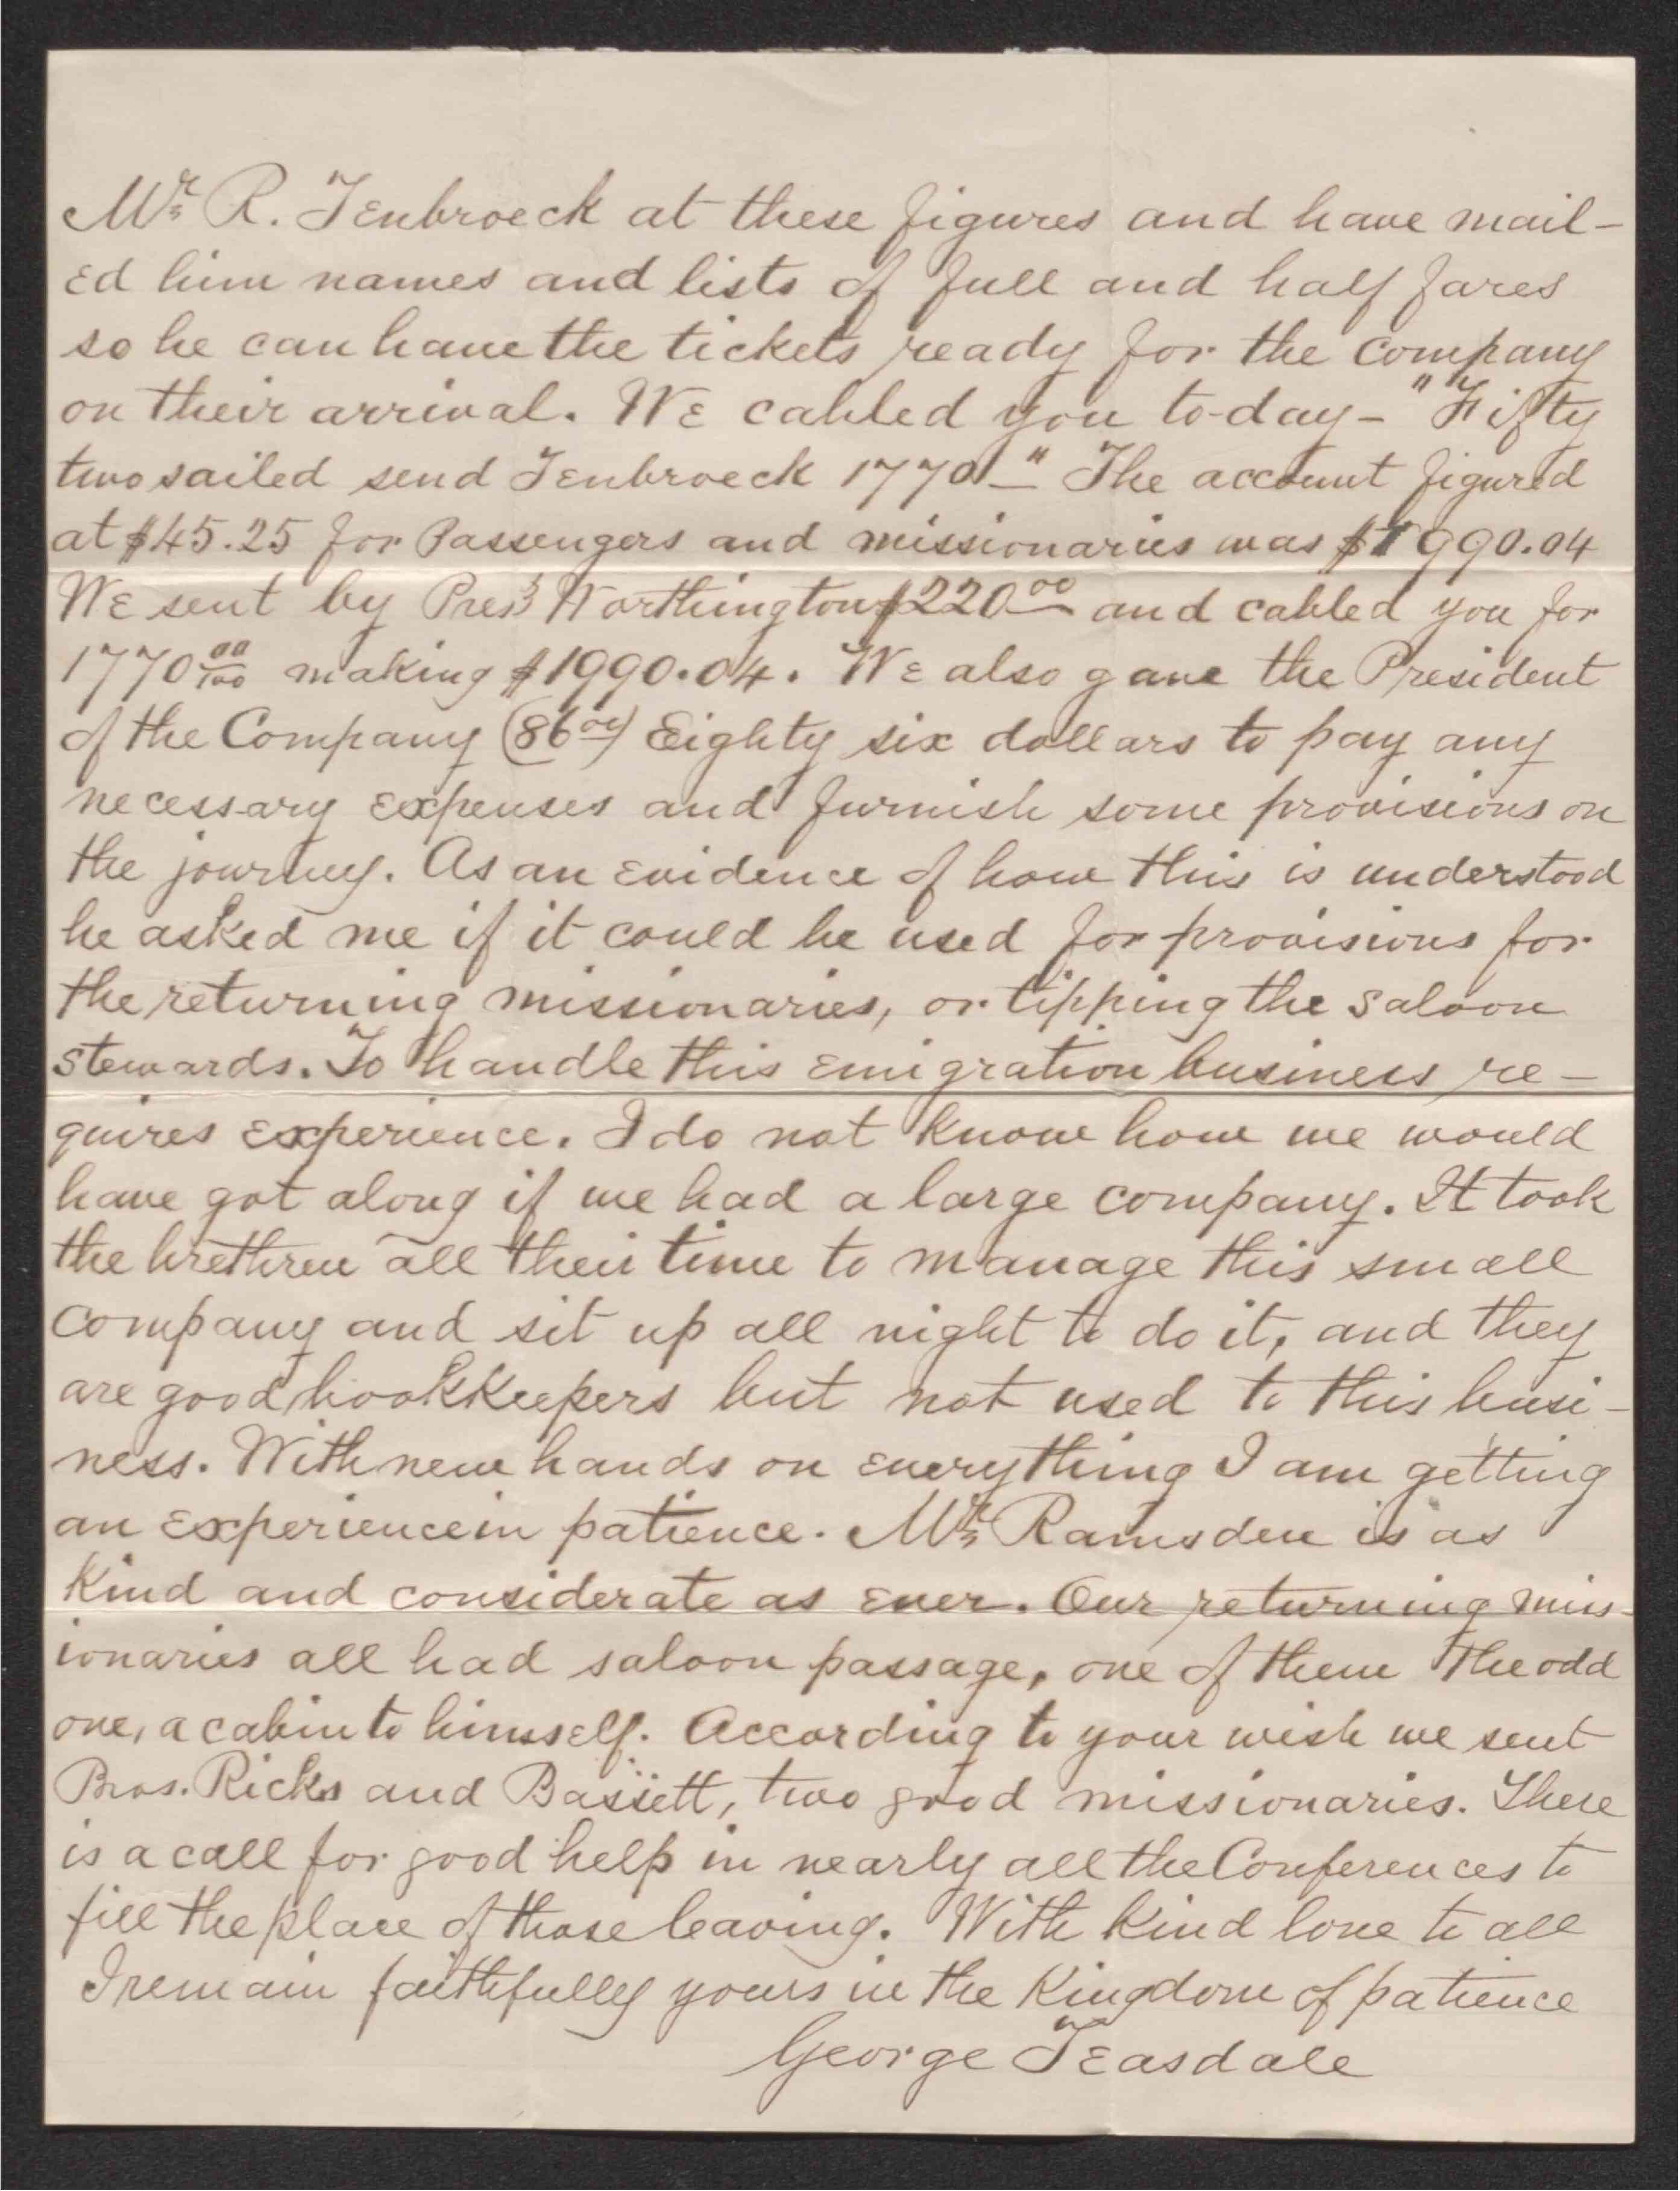 Mr. R. Tenbroeck at these figures and have mail-
ed him names and lists of full and half fares
so he can have the tickets ready for the company
on their arrival. We cabled you to-day - "Fifty
two sailed send Tenbroeck 1770 - " The account figured
at $45.25 for Passengers and missionaries was $1990.04
We sent by Prest Worthington $220 00 and cabled you for
1770 00/100 making $1990.04. We also gave the President
of the Company (86 00) Eighty six dollars to pay any
necessary expenses and furnish some provisions on
the journey. As an evidence of how this is understood
he asked me if it could be used for provisions for
the returning missionaries, or tipping the saloon
stewards. To handle this emigration business re-
quires experience. I do not know how we would
have got along if we had a large company. It took
the brethren all their time to manage this small
company and sit up all night to do it, and they
are good bookkeepers but not used to this busi-
ness. With new hands on everything I am getting
an experience in patience. Mr. Ramsden is as
kind and considerate as ever. Our returning miss-
ionaries all had saloon passage, one of them the odd
one, a cabin to himself. According to your wish we sent
Bros. Ricks and Bassett, two good missionaries. There
is a call for good help in nearly all the Conferences to
fill the place of those leaving. With kind love to all
I remain faithfully yours in the Kingdom of patience
George Teasdale